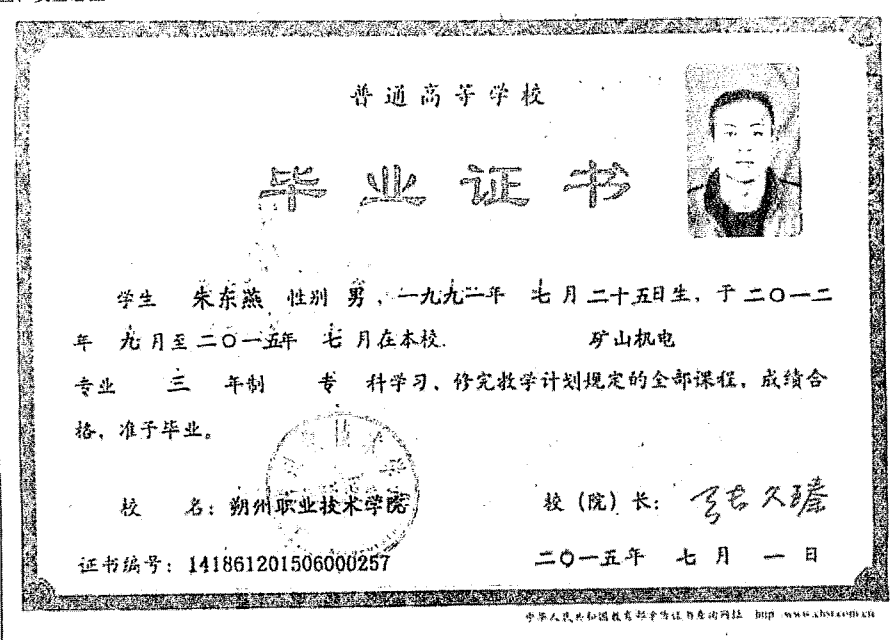 普通高等学校
毕业证书
学生 朱东燕 性别 男，一九九一年 七月二十五日生，于二〇一二
年 九月至二〇一五年 七月在本校. 矿山机电
专业 三 年制 专 科学习、修完教学计划规定的全部课程，成绩合
格，准予毕业。
校 名：朔州职业技术学院 校（院）长：
证书编号：141861201506000257 二〇一五年 七月 一日
中华人民共和国教育部学历证书查询网址 http://www.chsi.com.cn